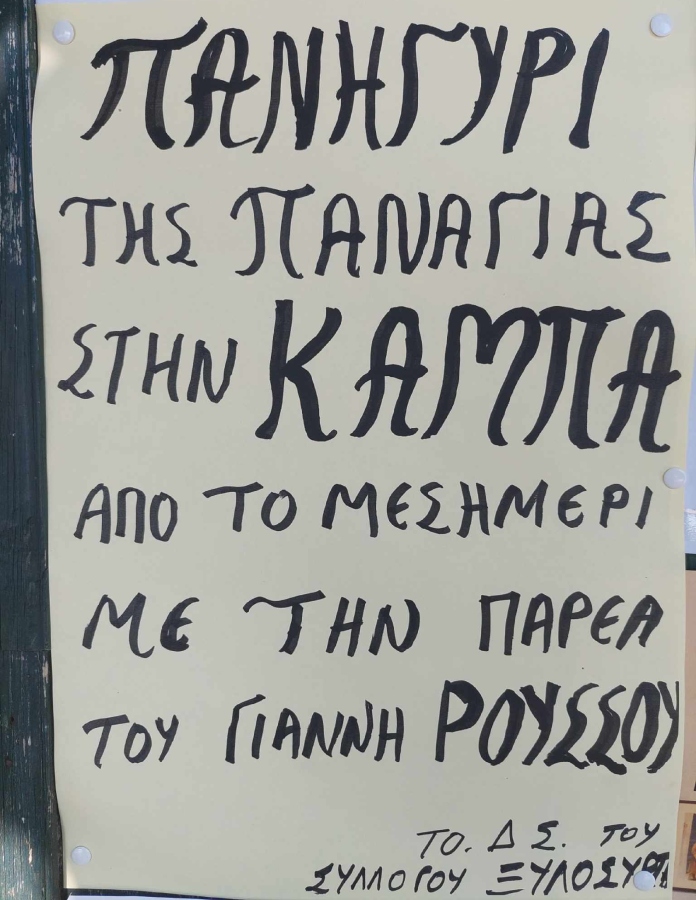 ΠΑΝΗΓΥΡΙ
ΤΗΣ ΠΑΝΑΓΙΑΣ
ΣΤΗΝ ΚΑΜΠΑ
ΑΠΟ ΤΟ ΜΕΣΗΜΕΡΙ
ΜΕ ΤΗΝ ΠΑΡΕΑ
ΤΟΥ ΓΙΑΝΝΗ ΡΟΥΣΣΟΥ
ΤΟ. Δ Σ. ΤΟΥ
ΣΥΛΛΟΓΟΥ